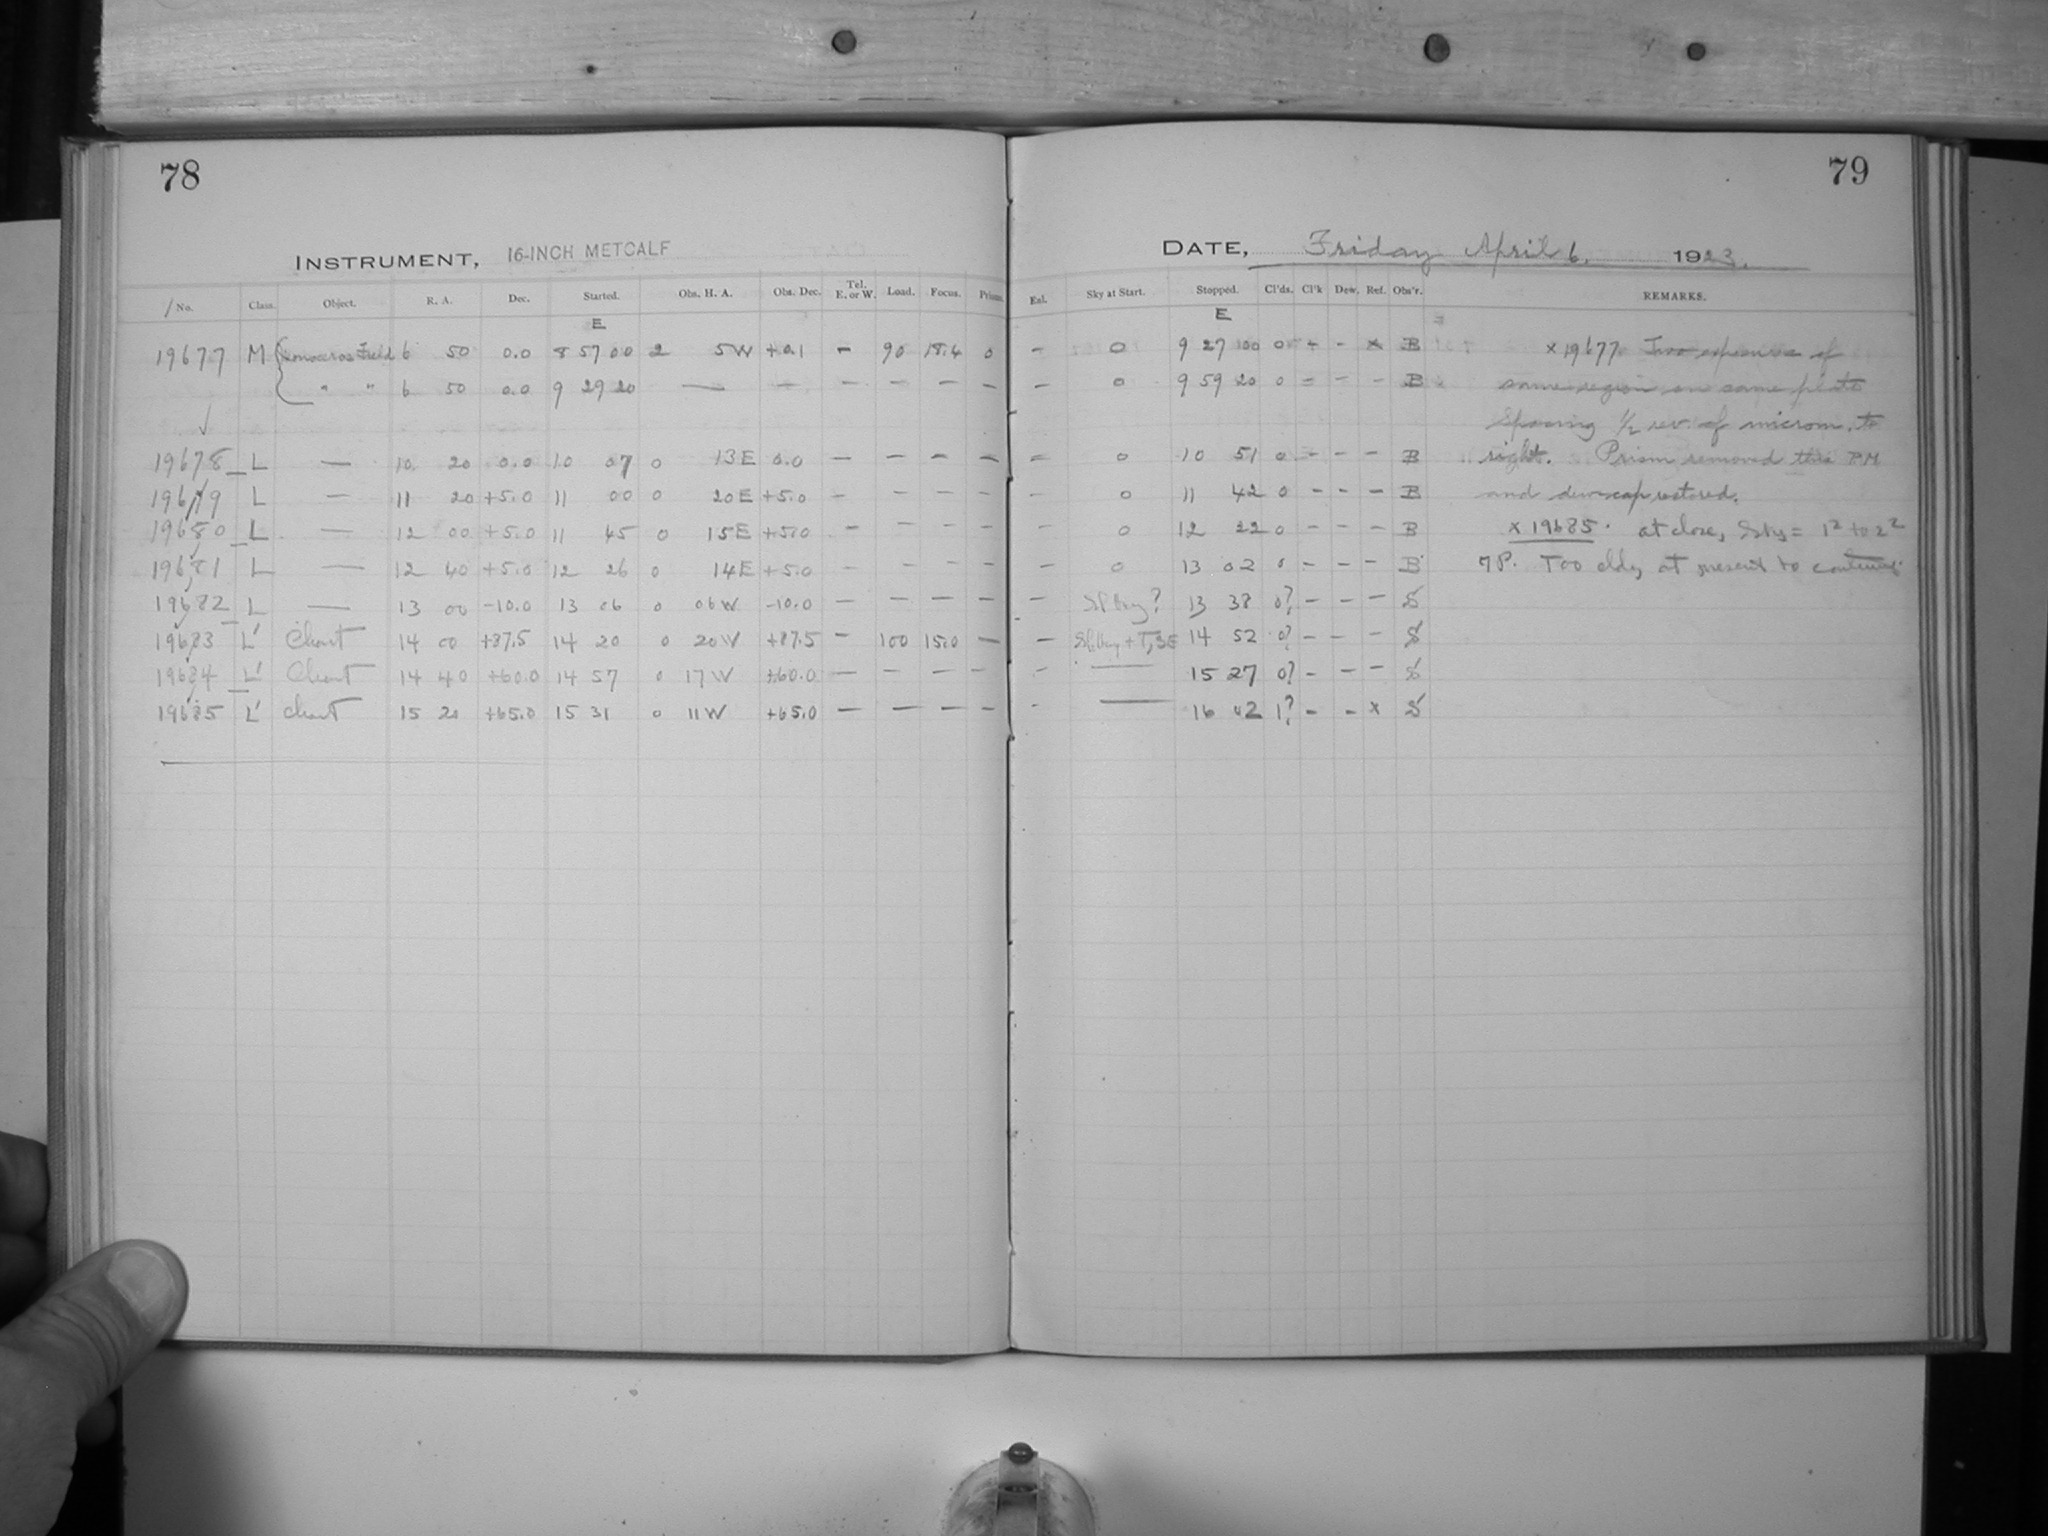 78
INSTRUMENT, 16-INCH METCALF
/ No. Class. Object. R. A. Dec. Started. Obs. H. A. Obs. Dec. Tel. E. or W. Load. Focus. Prisms.
E
19677 M Monoceros Field 6 50 0.0 8 57 00 2 5W +0.1 - 90 18.4 0
" " 6 50 0.0 9 29 20 — — — — — —
19678 L — 10 20 0.0 10 07 0 13E 0.0 — — — —
19679 L — 11 20 +5.0 11 00 0 20E +5.0 — — — —
19680 L — 12 00 +5.0 11 45 0 15E +5.0 — — — —
19681 L — 12 40 +5.0 12 26 0 14E +5.0 — — — —
19682 L — 13 00 -10.0 13 06 0 06W -10.0 — — — —
19683 L' Chart 14 00 +87.5 14 20 0 20W +87.5 — 100 15.0 —
19684 L' Chart 14 40 +60.0 14 57 0 17W +60.0 — — — —
19685 L' chart 15 20 +65.0 15 31 0 11W +65.0 — — — —
79
DATE, Friday April 6. 1923.
Exl. Sky at Start. Stopped. Cl'ds. Cl'k Dew. Ref. Obs'r. REMARKS.
E
- 0 9 27 00 0 - - x B x 19677 Two exposures of
- 0 9 59 20 0 - - - B same region on same plate
Spacing 1/2 rev. of microm. to
- 0 10 51 0 - - - B right. Prism removed this PM
- 0 11 42 0 - - - B and dewcap restored.
- 0 12 22 0 - - - B x 19685. at close, Sky = 1² to 2²
- 0 13 02 0 - - - B 7P. Too cldy at present to continue.
- ? 13 38 0? - - - S
- 14 52 0? - - - S
- — 15 27 0? - - - S
- — 16 02 1? - - x S